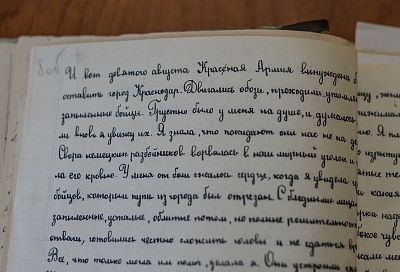 И вот девятого августа Красная Армия вынуждена б
оставить город Краснодар. Двигались обозы, проходили утомлен
запыленные бойцы. Грустно было у меня на душе, и думалось
ли вновь я увижу их. Я знала, что покидают они нас не на до
Свора немецких разбойников ворвалась в наш мирный уголок и
ла его кровью. У меня от боли сжалось сердце, когда я увидела
бойцов, которым путь из города был отрезан. С бледными лицам
запыленные, усталые, облитые потом, но полные решительно
отваги, готовились честно сложить головы и не сдаться вр
Все, что только могла им помочь, делала я. Они устроили